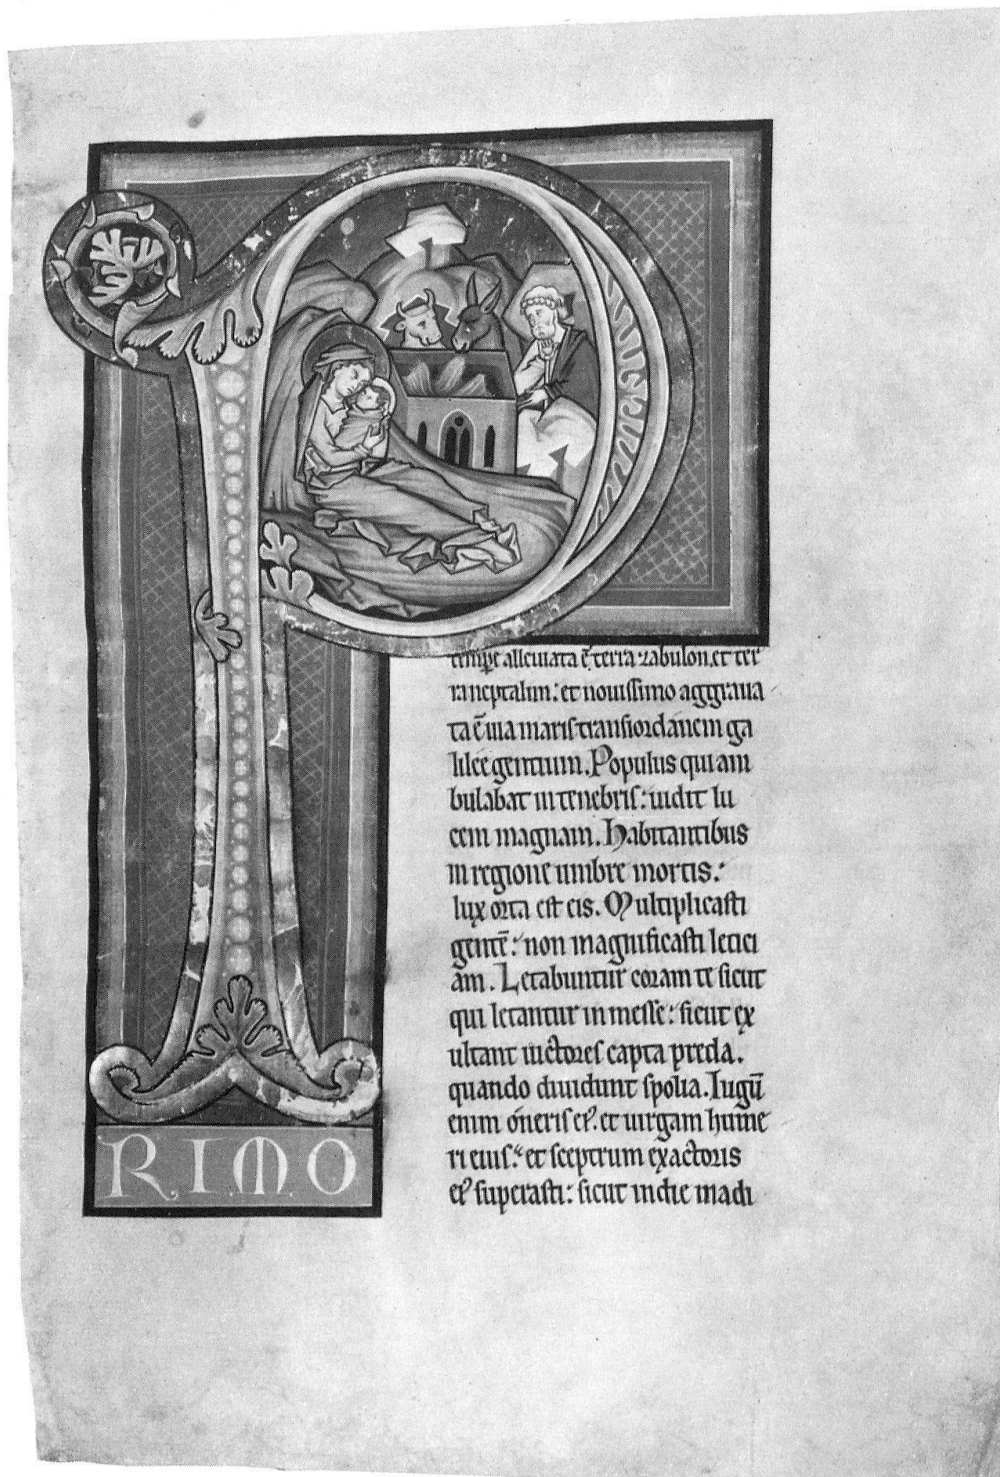 PRIMO
tempe alleuiata ē terra zabulon. et ter
ra neptalim: et nouissimo aggraua
ta ē uia maris transiordanem ga
lilee gentium. Populus qui am
bulabat in tenebris: uidit lu
cem magnam. Habitantibus
in regione umbre mortis:
lux orta est eis. Multiplicasti
gentē: non magnificasti letici
am. Letabuntur coram te sicut
qui letantur in messe: sicut ex
ultant uictores capta preda.
quando diuidunt spolia. Iugū
enim oneris ei. et uirgam hume
ri eius: et sceptrum exactoris
ei superasti: sicut in die madi